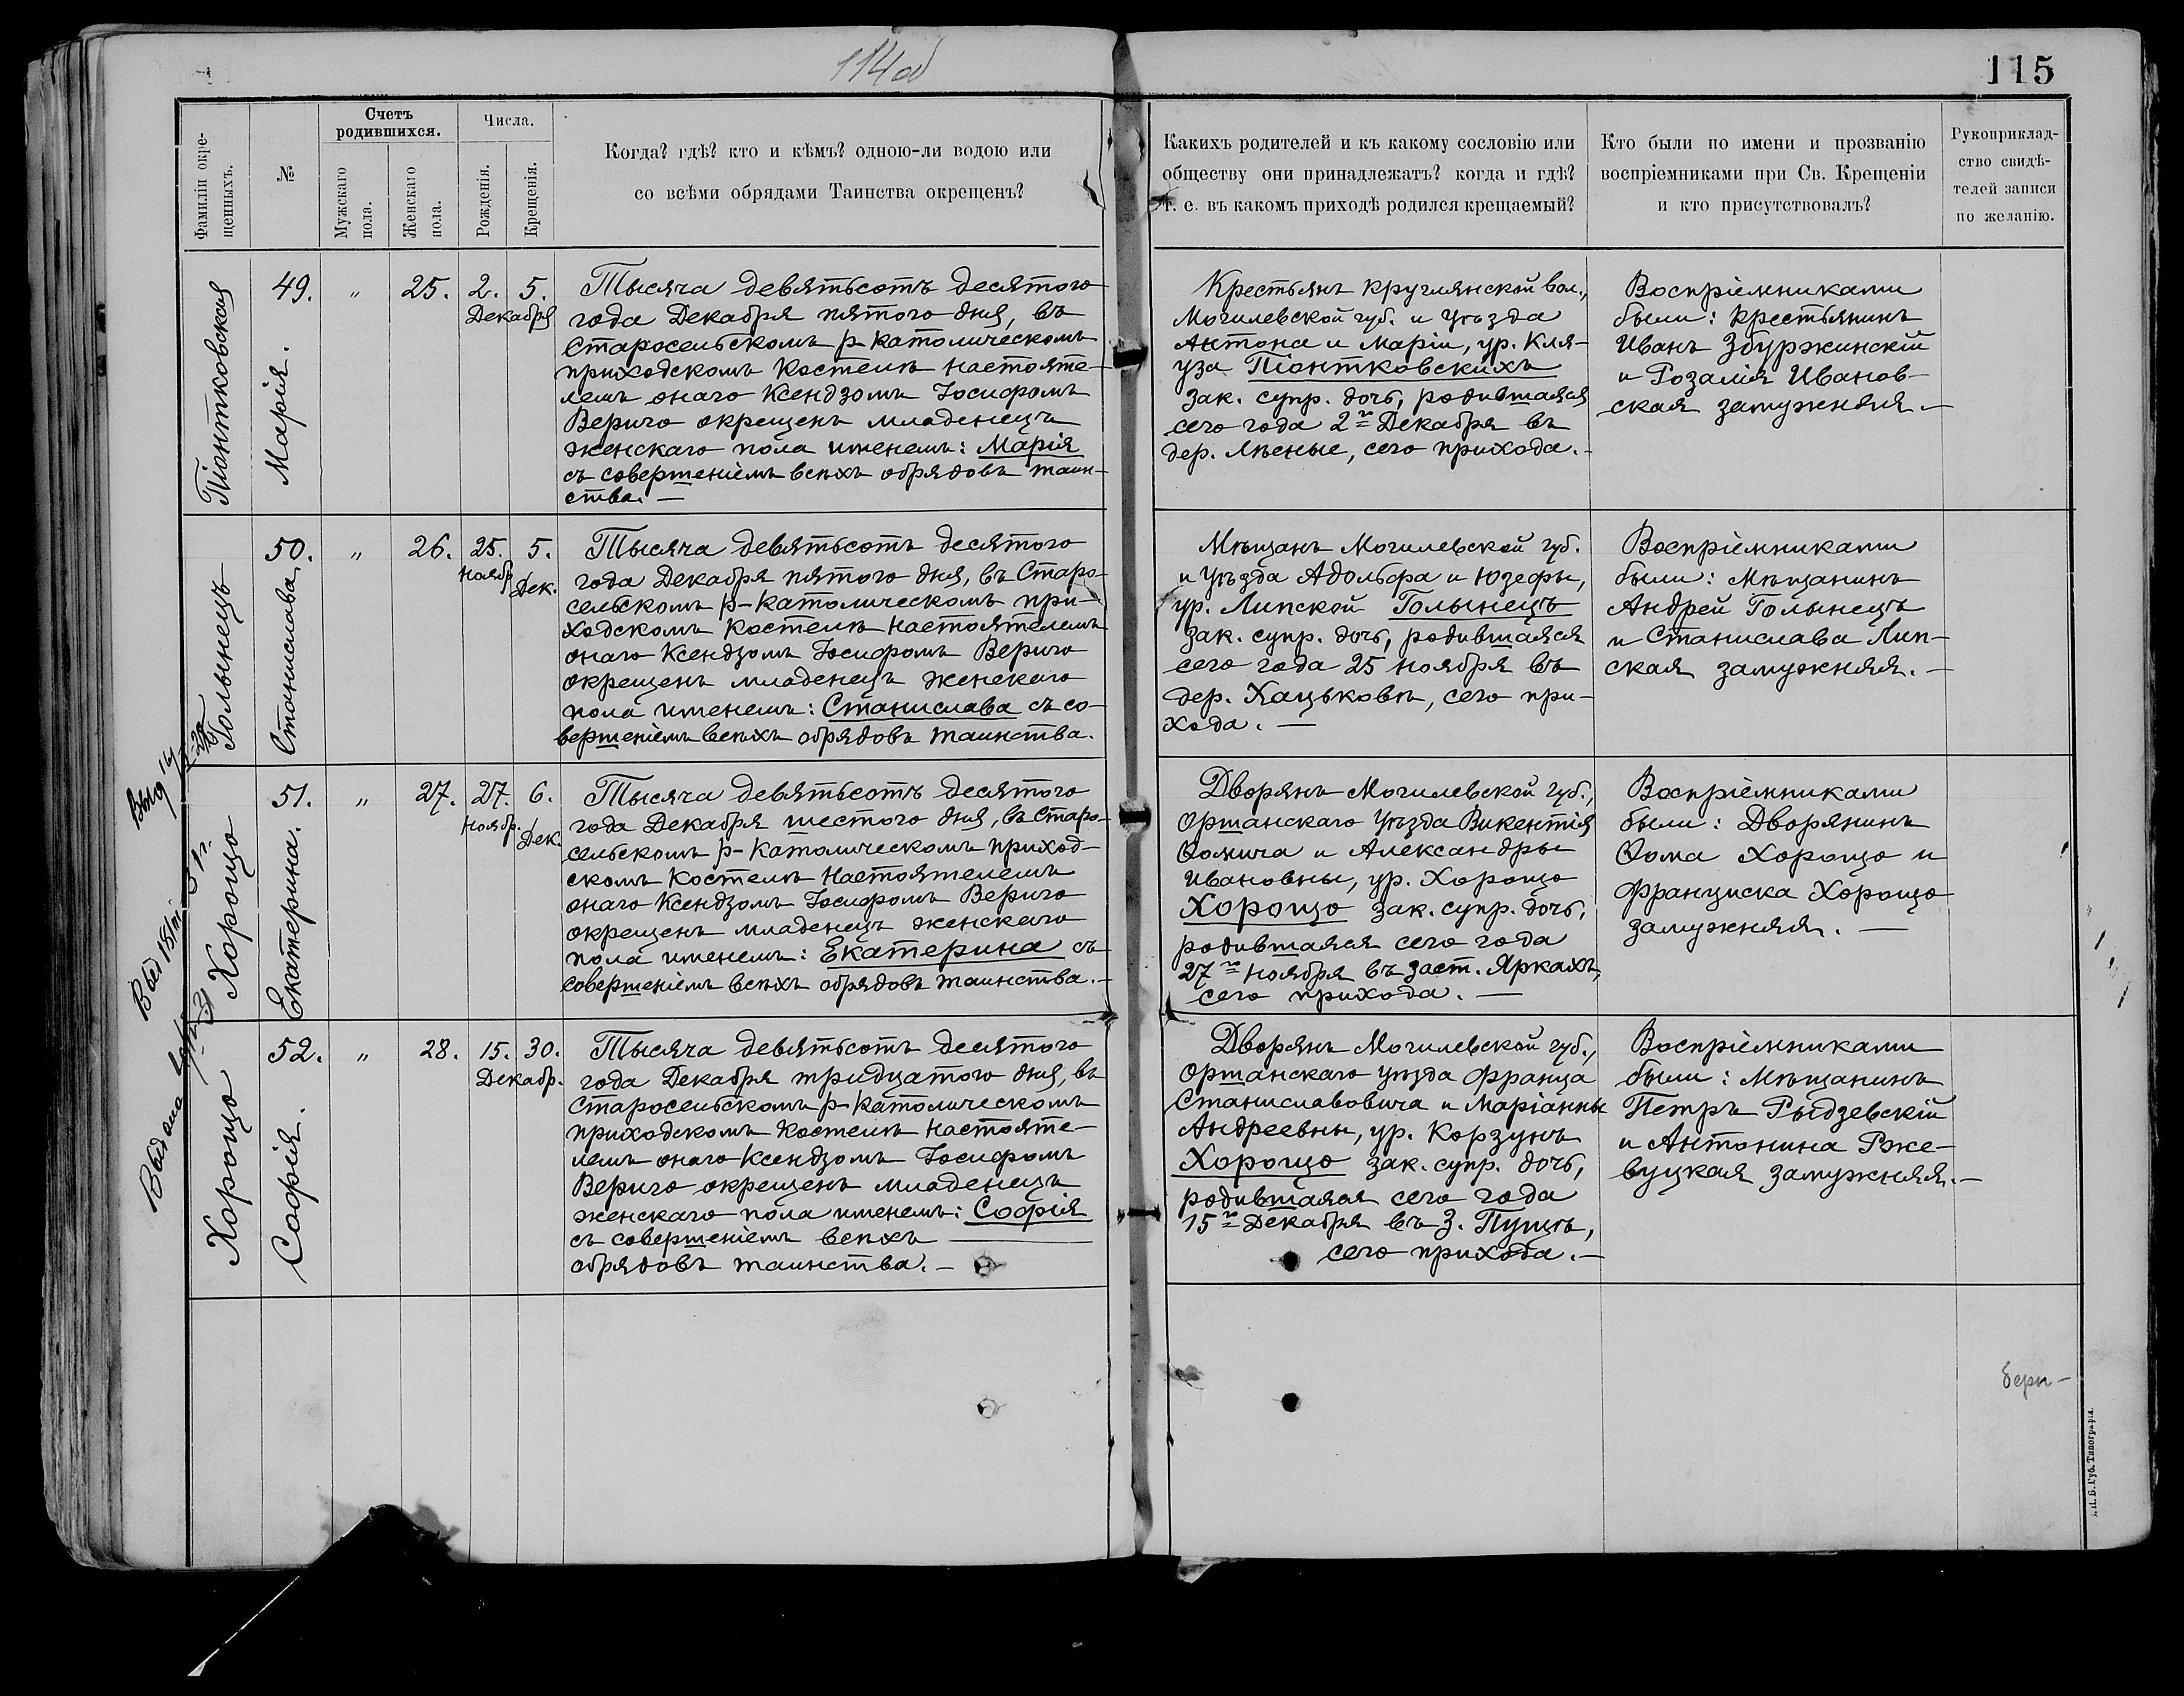 114об
115
Фамиліи окре-
щенныхъ.
№
Счетъ
родившихся.
Мужскаго
пола.
Женскаго
пола.
Числа.
Рожденія.
Крещенія.
Когда? гдѣ? кто и кѣмъ? одною-ли водою или
со всѣми обрядами Таинства окрещенъ?
Какихъ родителей и къ какому сословію или
обществу они принадлежатъ? когда и гдѣ?
т. е. въ какомъ приходѣ родился крещаемый?
Кто были по имени и прозванію
воспріемниками при Св. Крещеніи
и кто присутствовалъ?
Рукоприклад-
ство свидѣ-
телей записи
по желанію.
Піонтковская
Марія.
49. " 25. 2. 5.
Декабря
Тысяча девятьсотъ десятого
года Декабря пятого дня, въ
Старосельскомъ р-католическомъ
приходскомъ костелѣ Настояте-
лемъ онаго Ксендзомъ Іосифомъ
Вериго окрещенъ младенецъ
женскаго пола именемъ: Марія
съ совершеніемъ всѣхъ обрядовъ таин-
ства. —
Крестьянъ Круглянской вол.,
Могилевской губ. и уѣзда
Антона и Маріи, ур. Кля-
уза Піонтковскихъ
зак. супр. дочь, родившаяся
сего года 2го Декабря въ
дер. Лѣсные, сего прихода. -
Воспріемниками
были: крестьянинъ
Иванъ Збуржинскій
и Розалія Иванов-
ская замужняя. —
Голынецъ
Станислава.
50. " 26. 25. 5.
Ноябр. Дек.
Тысяча девятьсотъ десятого
года Декабря пятого дня, въ Старо-
сельскомъ р-католическомъ при-
ходскомъ костелѣ Настоятелемъ
онаго Ксендзомъ Іосифомъ Вериго
окрещенъ младенецъ женскаго
пола именемъ: Станислава съ со-
вершеніемъ всѣхъ обрядовъ таинства.
Мѣщанъ Могилевской губ.
и уѣзда Адольфа и Юзефы,
ур. Липской Голынецъ
зак. супр. дочь, родившаяся
сего года 25 ноября въ
дер. Хацьковѣ, сего при-
хода. —
Воспріемниками
были: Мѣщанинъ
Андрей Голынецъ
и Станислава Лип-
ская замужняя. —
Хорощо
Екатерина.
51. " 27. 27. 6.
Ноябр. Дек.
Тысяча девятьсотъ десятого
года Декабря шестого дня, въ Старо-
сельскомъ р-католическомъ приход-
скомъ костелѣ Настоятелемъ
онаго Ксендзомъ Іосифомъ Вериго
окрещенъ младенецъ женскаго
пола именемъ: Екатерина съ
совершеніемъ всѣхъ обрядовъ таинства. -
Дворянъ Могилевской губ.,
Оршанскаго уѣзда Викентія
Ѳомича и Александры
Ивановны, ур. Хорощо
Хорощо зак. супр. дочь,
родившаяся сего года
27го ноября въ заст. Яркахъ,
сего прихода. —
Воспріемниками
были: Дворянинъ
Ѳома Хорощо и
Франциска Хорощо
замужняя. —
Хорощо
Софія.
52. " 28. 15. 30.
Декабр.
Тысяча девятьсотъ десятого
года Декабря тридцатого дня, въ
Старосельскомъ р-католическомъ
приходскомъ костелѣ Настояте-
лемъ онаго Ксендзомъ Іосифомъ
Вериго окрещенъ младенецъ
женскаго пола именемъ: Софія
съ совершеніемъ всѣхъ —
обрядовъ таинства. —
Дворянъ Могилевской губ.,
Оршанскаго уѣзда Франца
Станиславовича и Маріанны
Андреевны, ур. Корзунъ
Хорощо зак. супр. дочь,
родившаяся сего года
15го Декабря въ з. Пущѣ,
сего прихода. —
Воспріемниками
были: Мѣщанинъ
Петръ Рыдзевскій
и Антонина Рже-
вуцкая замужняя. —